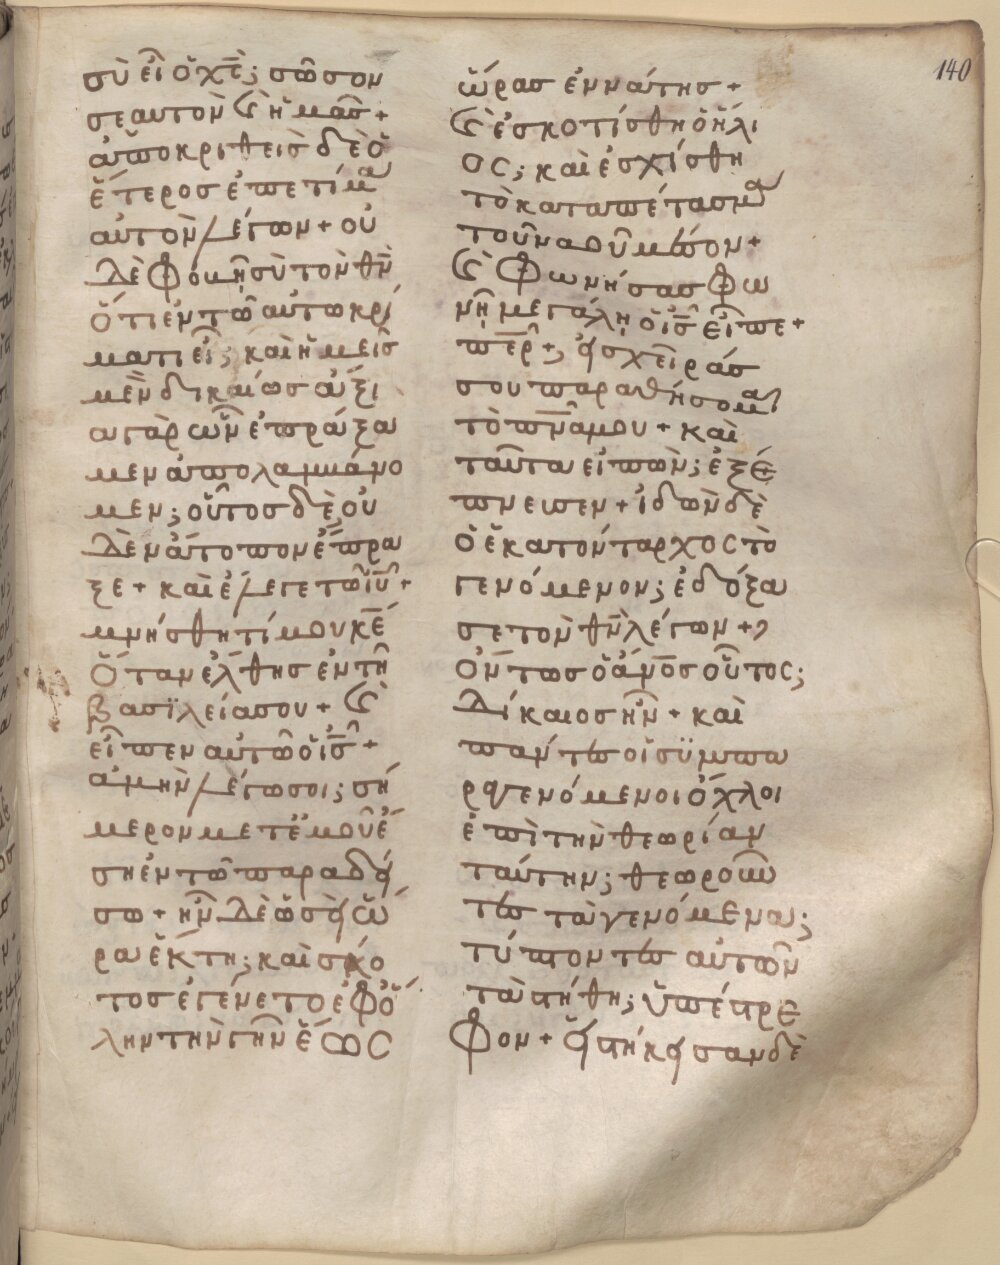 140
σὺ εἶ ὁ χ̅ς̅; σῶσον
σεαυτὸν καὶ ἡμᾶς +
ἀποκριθεὶς δὲ ὁ
ἕτερος ἐπετίμα
αὐτὸν λέγων + οὐ
δὲ φοβῆ σὺ τὸν θ̅ν̅
ὅτι ἐν τῶ αὐτῶ κρί
ματι εἶ; καὶ ἡμεῖς
μὲν δικαίως ἄξι
α γὰρ ὧν ἐπράξα
μεν ἀπολαμβάνο
μεν; οὗτος δὲ οὐ
δὲν ἄτοπον ἔπρα
ξε + καὶ ἔλεγε τῶ ι̅υ̅ +
μνήσθητί μου κ̅ε̅
ὅταν ἔλθης ἐν τῆ
βασϊλεία σου + καὶ
εἶπεν αὐτῶ ὁ ι̅ς̅ +
ἀμὴν λέγω σοι; σή
μερον μετ ἐμοῦ ἔ
ση ἐν τῶ παραδεί
σω + ἦν δὲ ὡσεὶ ὥ
ρα ἕκτη; καὶ σκό
τος ἐγένετο ἐφ ὅ
λην τὴν γῆν ἕως
ὥρας ἐννάτης +
καὶ ἐσκοτίσθη ὁ ἥλι
ος; καὶ ἐσχίσθη
τὸ καταπέτασμα
τοῦ ναοῦ μέσον +
καὶ φωνήσας φω
νῆ μεγάλη ὁ ι̅ς̅ εἶπε +
π̅ε̅ρ̅ +; εἰς χεῖράς
σου παραθήσομαι
τὸ π̅ν̅α̅ μου + καὶ
ταῦτα εἰπὼν; ἐξέ
πνευσεν + ἰδὼν δὲ
ὁ ἑκατόνταρχος τὸ
γενόμενον; ἐδόξα
σε τὸν θ̅ν̅ λέγων +
ὄντως ὁ α̅ν̅ο̅ς̅ οὗτος;
δίκαιος ἦν + καὶ
πάντες οἱ σϋμπα
ραγενόμενοι ὄχλοι
ἐπὶ τὴν θεωρίαν
ταύτην; θεωροῦν
τες τὰ γενόμενα;
τύπτοντες αὐτῶν
τὰ στήθη; ὑπέστρε
φον + εἱστήκεισαν δὲ